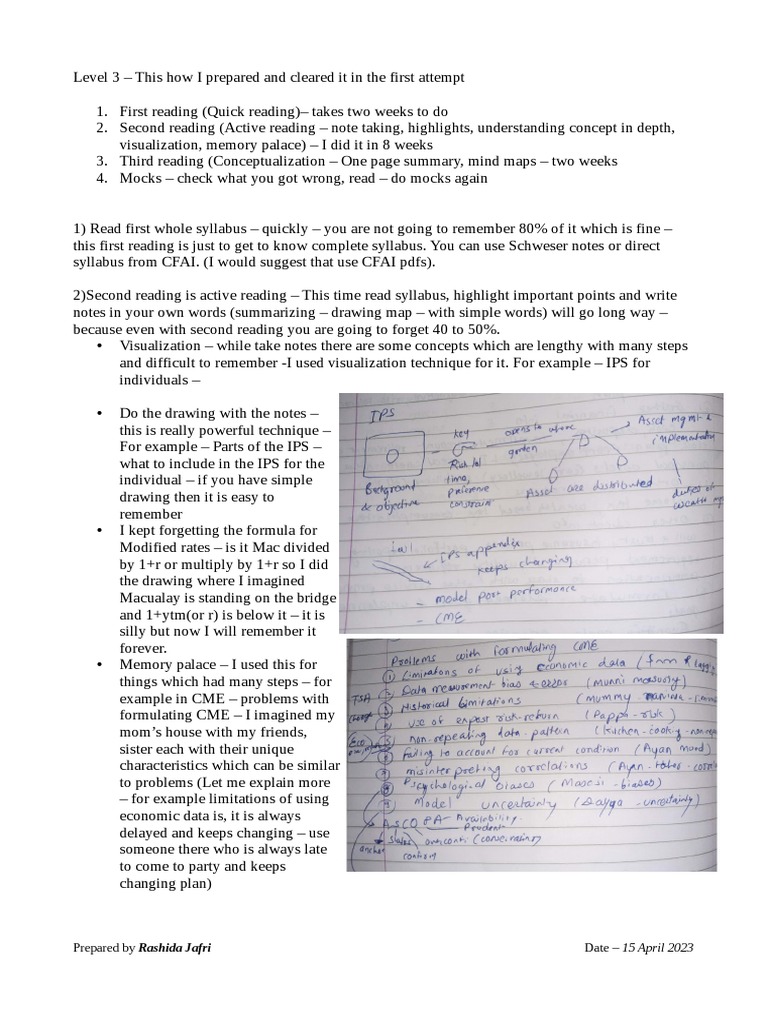 Level 3 – This how I prepared and cleared it in the first attempt
1. First reading (Quick reading)– takes two weeks to do
2. Second reading (Active reading – note taking, highlights, understanding concept in depth,
visualization, memory palace) – I did it in 8 weeks
3. Third reading (Conceptualization – One page summary, mind maps – two weeks
4. Mocks – check what you got wrong, read – do mocks again
1) Read first whole syllabus – quickly – you are not going to remember 80% of it which is fine –
this first reading is just to get to know complete syllabus. You can use Schweser notes or direct
syllabus from CFAI. (I would suggest that use CFAI pdfs).
2)Second reading is active reading – This time read syllabus, highlight important points and write
notes in your own words (summarizing – drawing map – with simple words) will go long way –
because even with second reading you are going to forget 40 to 50%.
• Visualization – while take notes there are some concepts which are lengthy with many steps
and difficult to remember -I used visualization technique for it. For example – IPS for
individuals –
• Do the drawing with the notes –
this is really powerful technique –
For example – Parts of the IPS –
what to include in the IPS for the
individual – if you have simple
drawing then it is easy to
remember
• I kept forgetting the formula for
Modified rates – is it Mac divided
by 1+r or multiply by 1+r so I did
the drawing where I imagined
Macualay is standing on the bridge
and 1+ytm(or r) is below it – it is
silly but now I will remember it
forever.
• Memory palace – I used this for
things which had many steps – for
example in CME – problems with
formulating CME – I imagined my
mom's house with my friends,
sister each with their unique
characteristics which can be similar
to problems (Let me explain more
– for example limitations of using
economic data is, it is always
delayed and keeps changing – use
someone there who is always late
to come to party and keeps
changing plan)
IPS
key
opens to
garden
Asset mgmt &
Background
& objective
time,
Asset are distributed
IPS appendix
keeps changing
- model port performance
- CME
Problems with formulating CME
① Limitations of using economic data
② Data measurement bias & error
③ Historical limitations
④ use of expost risk-return (Pappa-risk)
⑤ non-repeating data pattern (kitchen-cooking
⑥ failing to account for current condition (Ayan mood)
⑦ misinterpreting correlations
⑧ Psychological biases (Masesi-biases)
⑨ Model uncertainty
Availability
Prudent
Prepared by Rashida Jafri
Date – 15 April 2023